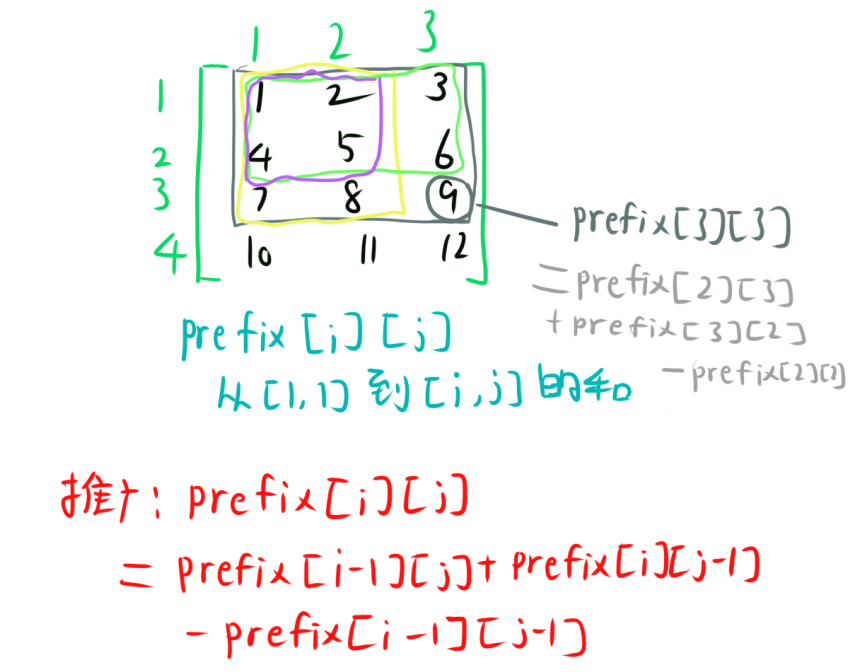 1 2 3
1 1 2 3
2 4 5 6
3 7 8 9
4 10 11 12
prefix[3][3]
=prefix[2][3]
+prefix[3][2]
-prefix[2][2]
prefix[i][j]
从[1,1]到[i,j]的和
推广: prefix[i][j]
= prefix[i-1][j]+prefix[i][j-1]
- prefix[i-1][j-1]